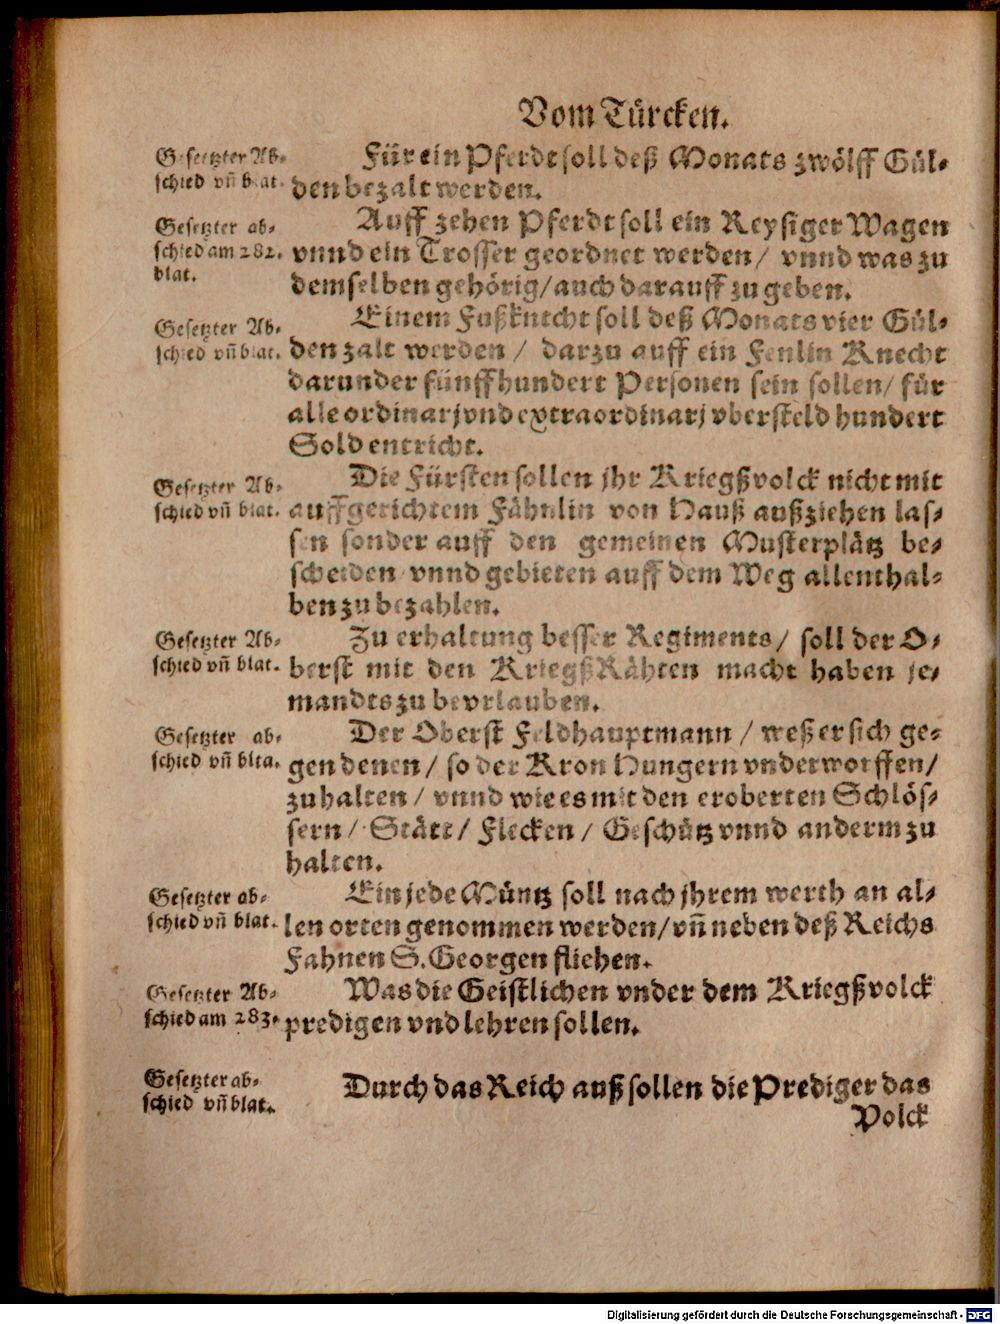 Vom Türcken.
Gesetzter Ab-
schied vñ blat.
Für ein Pferdt soll deß Monats zwölff Gül-
den bezalt werden.
Gesetzter ab-
schied am 282.
blat.
Auff zehen Pferdt soll ein Reysiger Wagen
vnnd ein Trosser geordnet werden / vnnd was zu
demselben gehörig / auch darauff zu geben.
Gesetzter Ab-
schied vñ blat.
Einem Fußknecht soll deß Monats vier Gül-
den zalt werden / darzu auff ein Fenlin Knecht
darunder fünffhundert Personen sein sollen / für
alle ordinarj vnd extraordinarj vbersteld hundert
Sold entricht.
Gesetzter Ab-
schied vñ blat.
Die Fürsten sollen jhr Kriegßvolck nicht mit
auffgerichtem Fähnlin von Hauß außziehen las-
sen sonder auff den gemeinen Musterplätz be-
scheiden vnnd gebieten auff dem Weg allenthal-
ben zu bezahlen.
Gesetzter Ab-
schied vñ blat.
Zu erhaltung besser Regiments / soll der O-
berst mit den KriegßRähten macht haben je-
mandts zu bevrlauben.
Gesetzter ab-
schied vñ blta.
Der Oberst Feldhauptmann / weß er sich ge-
gen denen / so der Kron Hungern vnderworffen /
zuhalten / vnnd wie es mit den eroberten Schlös-
sern / Stätt / Flecken / Geschütz vnnd anderm zu
halten.
Gesetzter ab-
schied vñ blat.
Ein jede Müntz soll nach jhrem werth an al-
len orten genommen werden / vñ neben deß Reichs
Fahnen S. Georgen fliehen.
Gesetzter Ab-
schied am 283.
Was die Geistlichen vnder dem Kriegßvolck
predigen vnd lehren sollen.
Gesetzter ab-
schied vñ blat.
Durch das Reich auß sollen die Prediger das
Volck
Digitalisierung gefördert durch die Deutsche Forschungsgemeinschaft - DFG